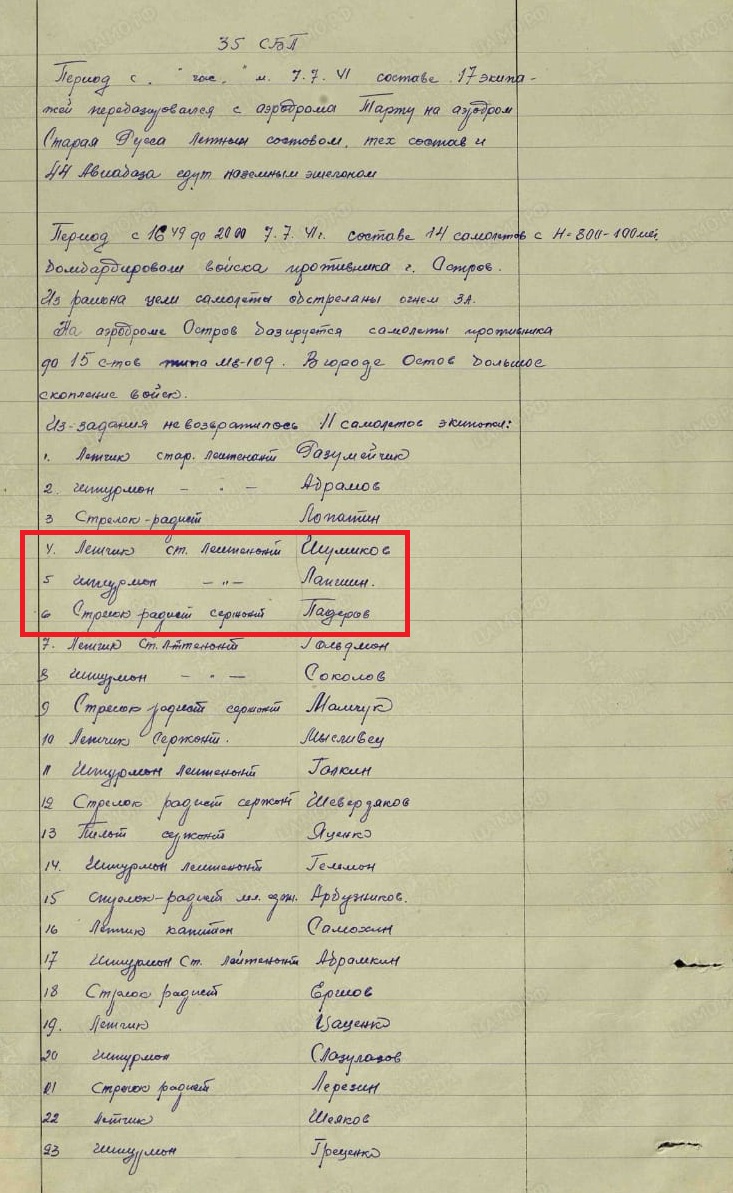 35 СБП
Период с. " час. " м. 7.7.VI составе 17 экипа-
жей перебазировался с аэродрома Тарту на аэродром
Старая Русса Летным составом, тех состав и
44 Авиабаза едут наземным эшелоном
Период с 16 49 до 20 00 7.7.41г. составе 14 самолетов с Н-800-100мет
Бомбардировали войска противника г. Остров.
Из района цели самолеты обстреляны огнем ЗА.
На аэродроме Остров базируется самолеты противника
до 15 с-тов типа Ме-109. В городе Остов большое
скопление войск.
Из-задания невозвратилось 11 самолетов экипажи:
1. Летчик стар. лейтенант Разумейчик
2. Штурман - " - Абрамов
3 Стрелок-радист Лопатин
4. Летчик ст. лейтенант Шумиков
5 Штурман - " - Лапшин.
6 Стрелок радист сержант Падеров
7. Летчик Ст. лттенант Гольдман
8 Штурман - " - Соколов
9 Стрелок радист сержант Мамчук
10 Летчик Сержант. Мысливец
11 Штурман лейтенант Галкин
12 Стрелок радист сержант Шевердяков
13 Пилот сержант Яценко
14. Штурман лейтенант Гельман
15 стрелок-радист мл. серж. Арбузников.
16 Летчик капитан Самохин
17 Штурман Ст. лейтенант Абрамкин
18 Стрелок радист Ершов
19. Летчик Цаценко
20 Штурман
21 Стрелок радист Лерезин
22 Летчик Шляков
23 Штурман Греценко